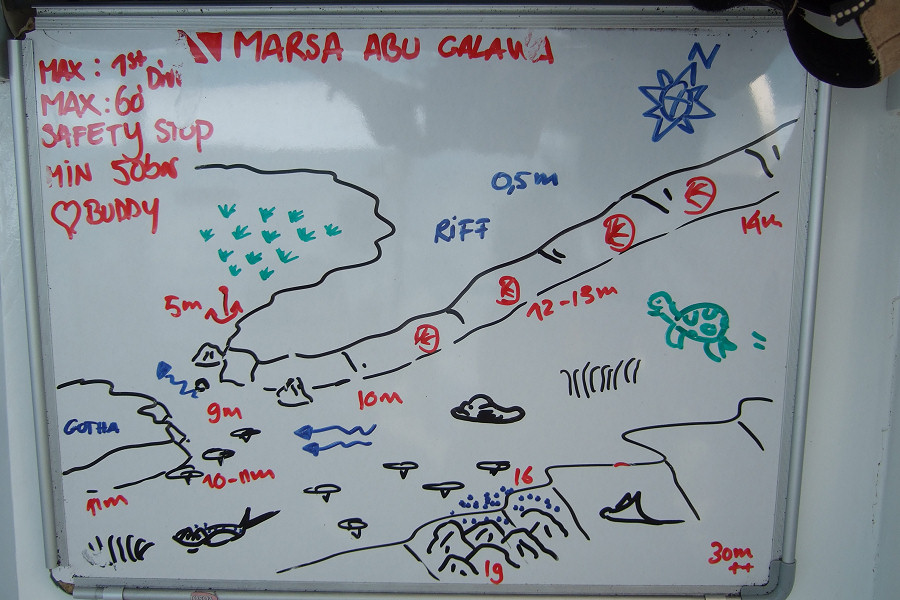 MARSA ABU GALAWA
MAX: 1st Dive
MAX: 60'
SAFETY STOP
MIN 50bar
♡ BUDDY
N
0,5m
RIFF
14m
5m
12-13m
10m
9m
GOTHA
10-11m
11m
16
19
30m
++